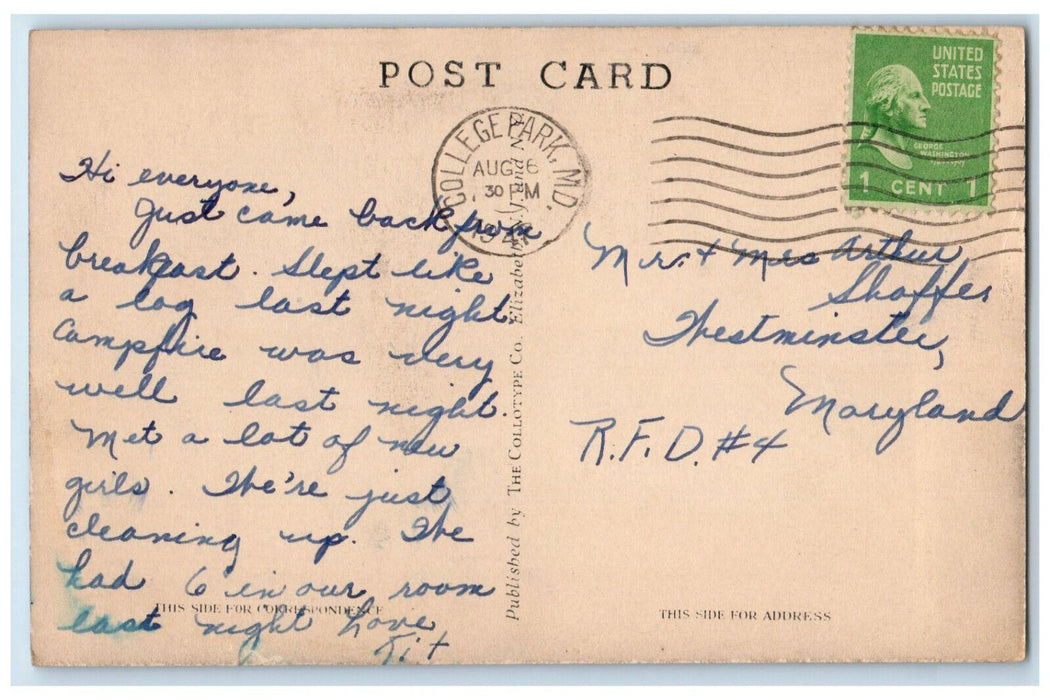 POST CARD
UNITED
STATES
POSTAGE
GEORGE
WASHINGTON
1 CENT 1
COLLEGE PARK, MD.
AUG 6
30 PM
Hi everyone,
Just came back from
breakfast. Slept like
a log last night.
Campfire was very
well last night.
Met a lot of new
girls. We're just
cleaning up. We
had 6 in our room
last night Love
Mr. + Mrs Arthur
Shaffer
Westminster,
Maryland
R.F.D. #4
Published by THE COLLOTYPE Co. Elizabeth
THIS SIDE FOR CORRESPONDENCE
THIS SIDE FOR ADDRESS